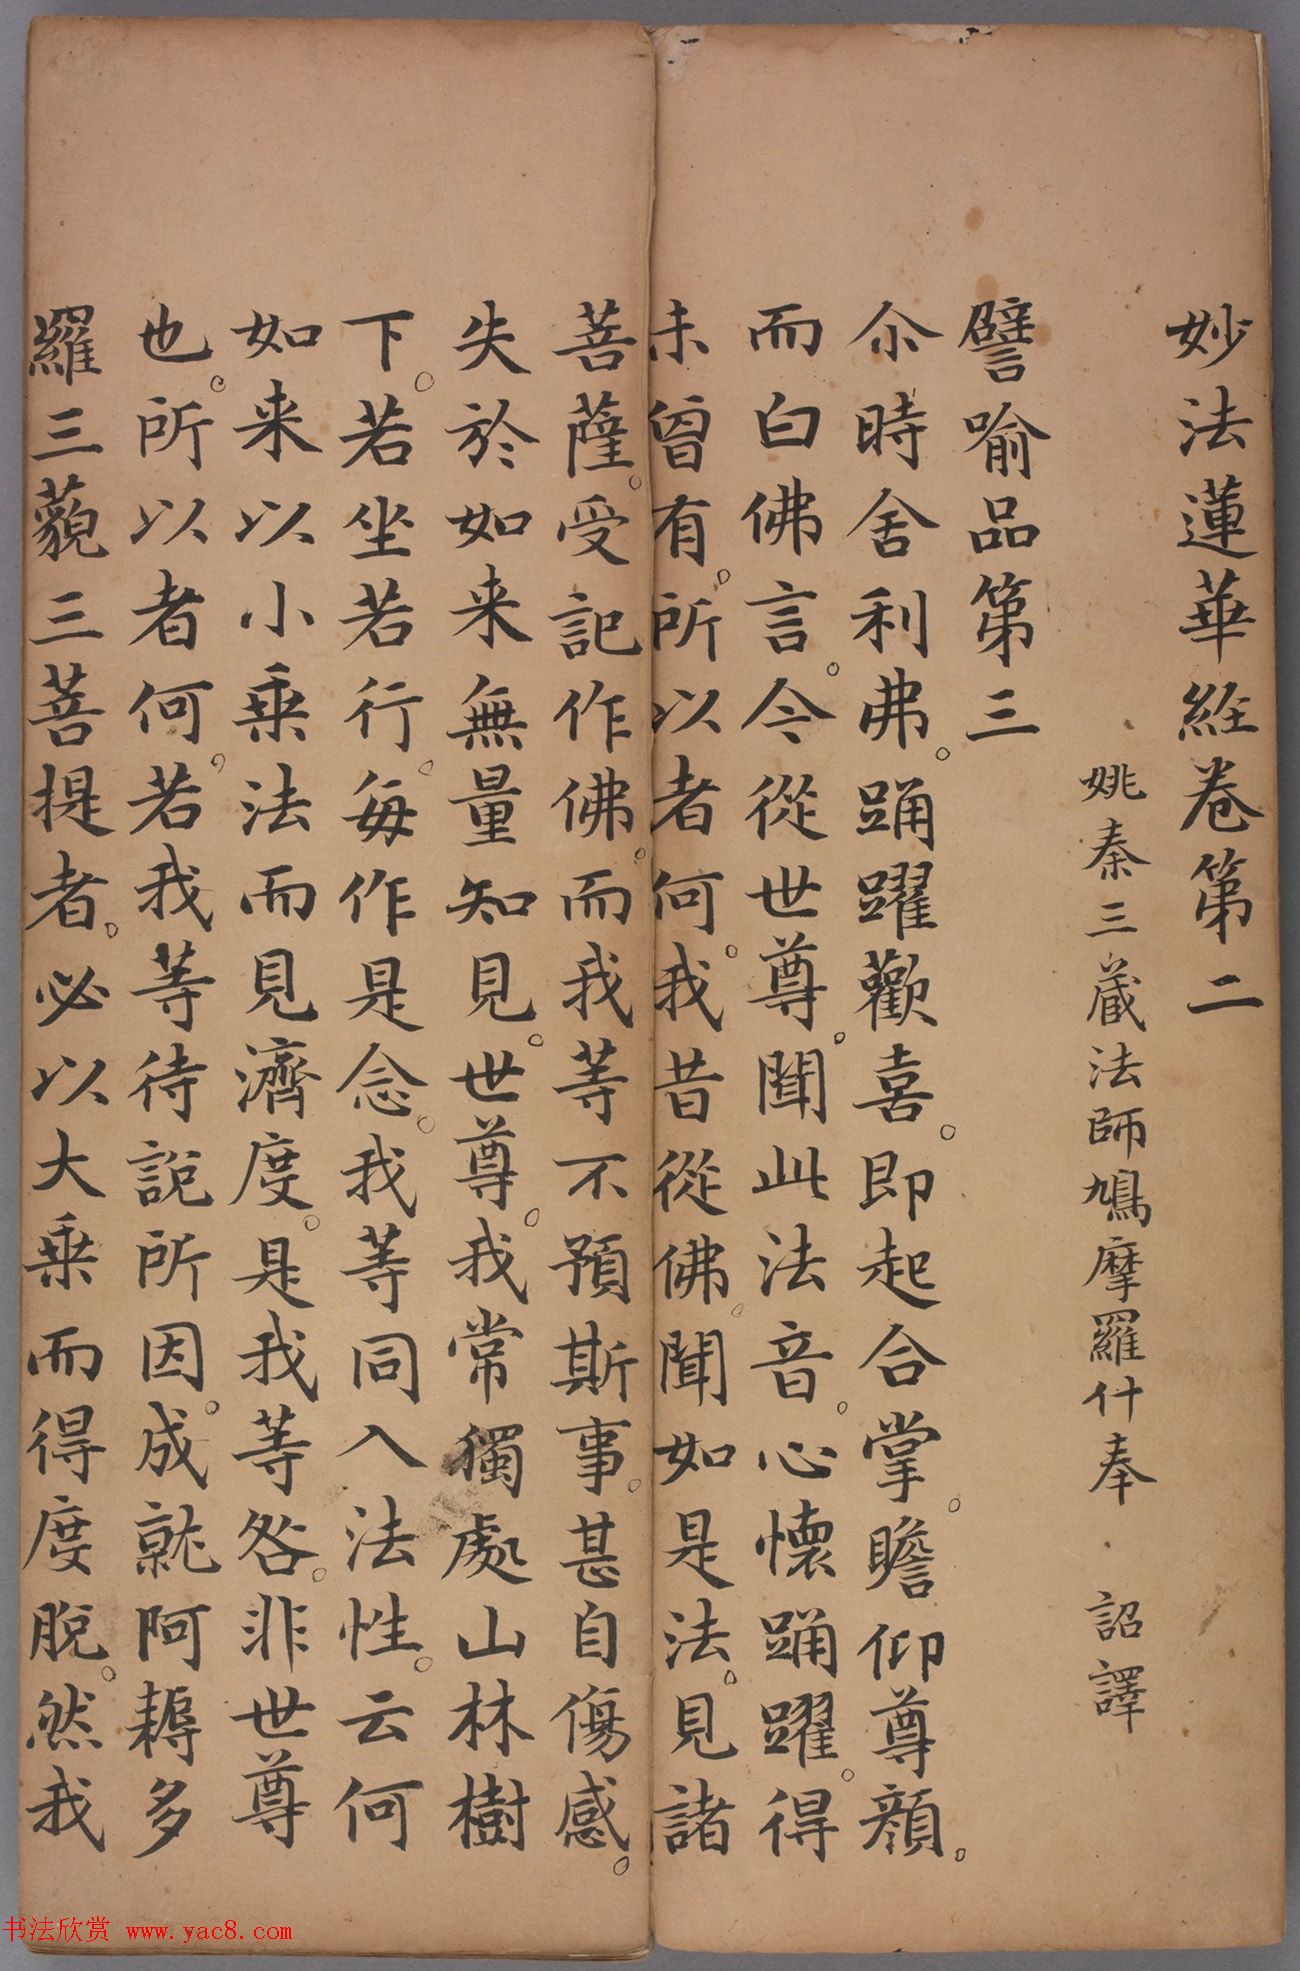 妙法蓮華經卷第二
姚秦三藏法師鳩摩羅什奉詔譯
譬喻品第三
尒時舍利弗。踊躍歡喜。即起合掌。瞻仰尊顏。
而白佛言。今從世尊。聞此法音。心懷踊躍。得
未曾有。所以者何。我昔從佛。聞如是法。見諸
菩薩。受記作佛。而我等不預斯事。甚自傷感。
失於如来無量知見。世尊。我常獨處山林樹
下。若坐若行。每作是念。我等同入法性。云何
如来以小乗法而見濟度。是我等咎。非世尊
也。所以者何。若我等待說所因。成就阿耨多
羅三藐三菩提者。必以大乗而得度脫。然我
书法欣赏 www.yac8.com